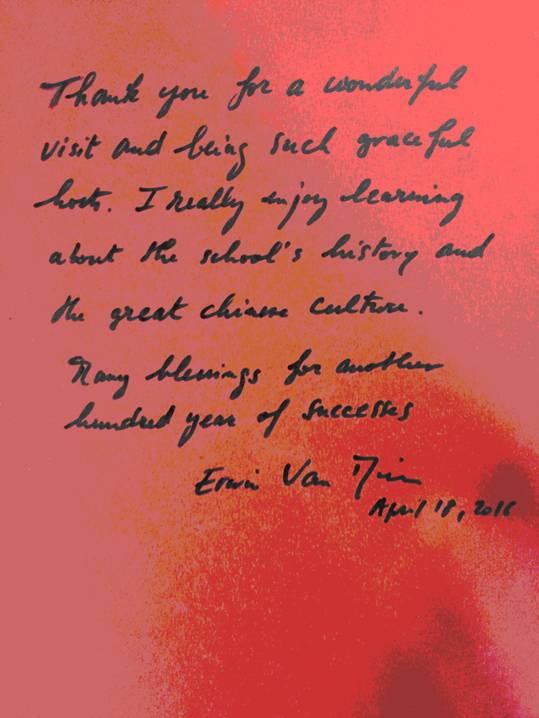 Thank you for a wonderful
visit and being such graceful
hosts. I really enjoy learning
about the school's history and
the great chinese culture.
Many blessings for another
hundred year of successes
Erwin Van
April 18, 2016